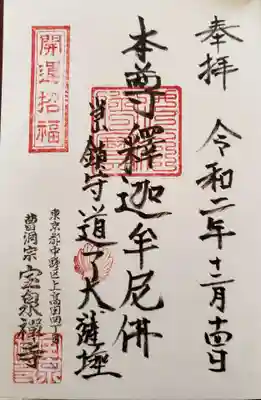 奉拝
令和二年十二月十四日
本尊釋迦牟尼佛
鎮守道了大薩埵
開運招福
東京都中野区上高田四丁目
曹洞宗 宝泉禅寺